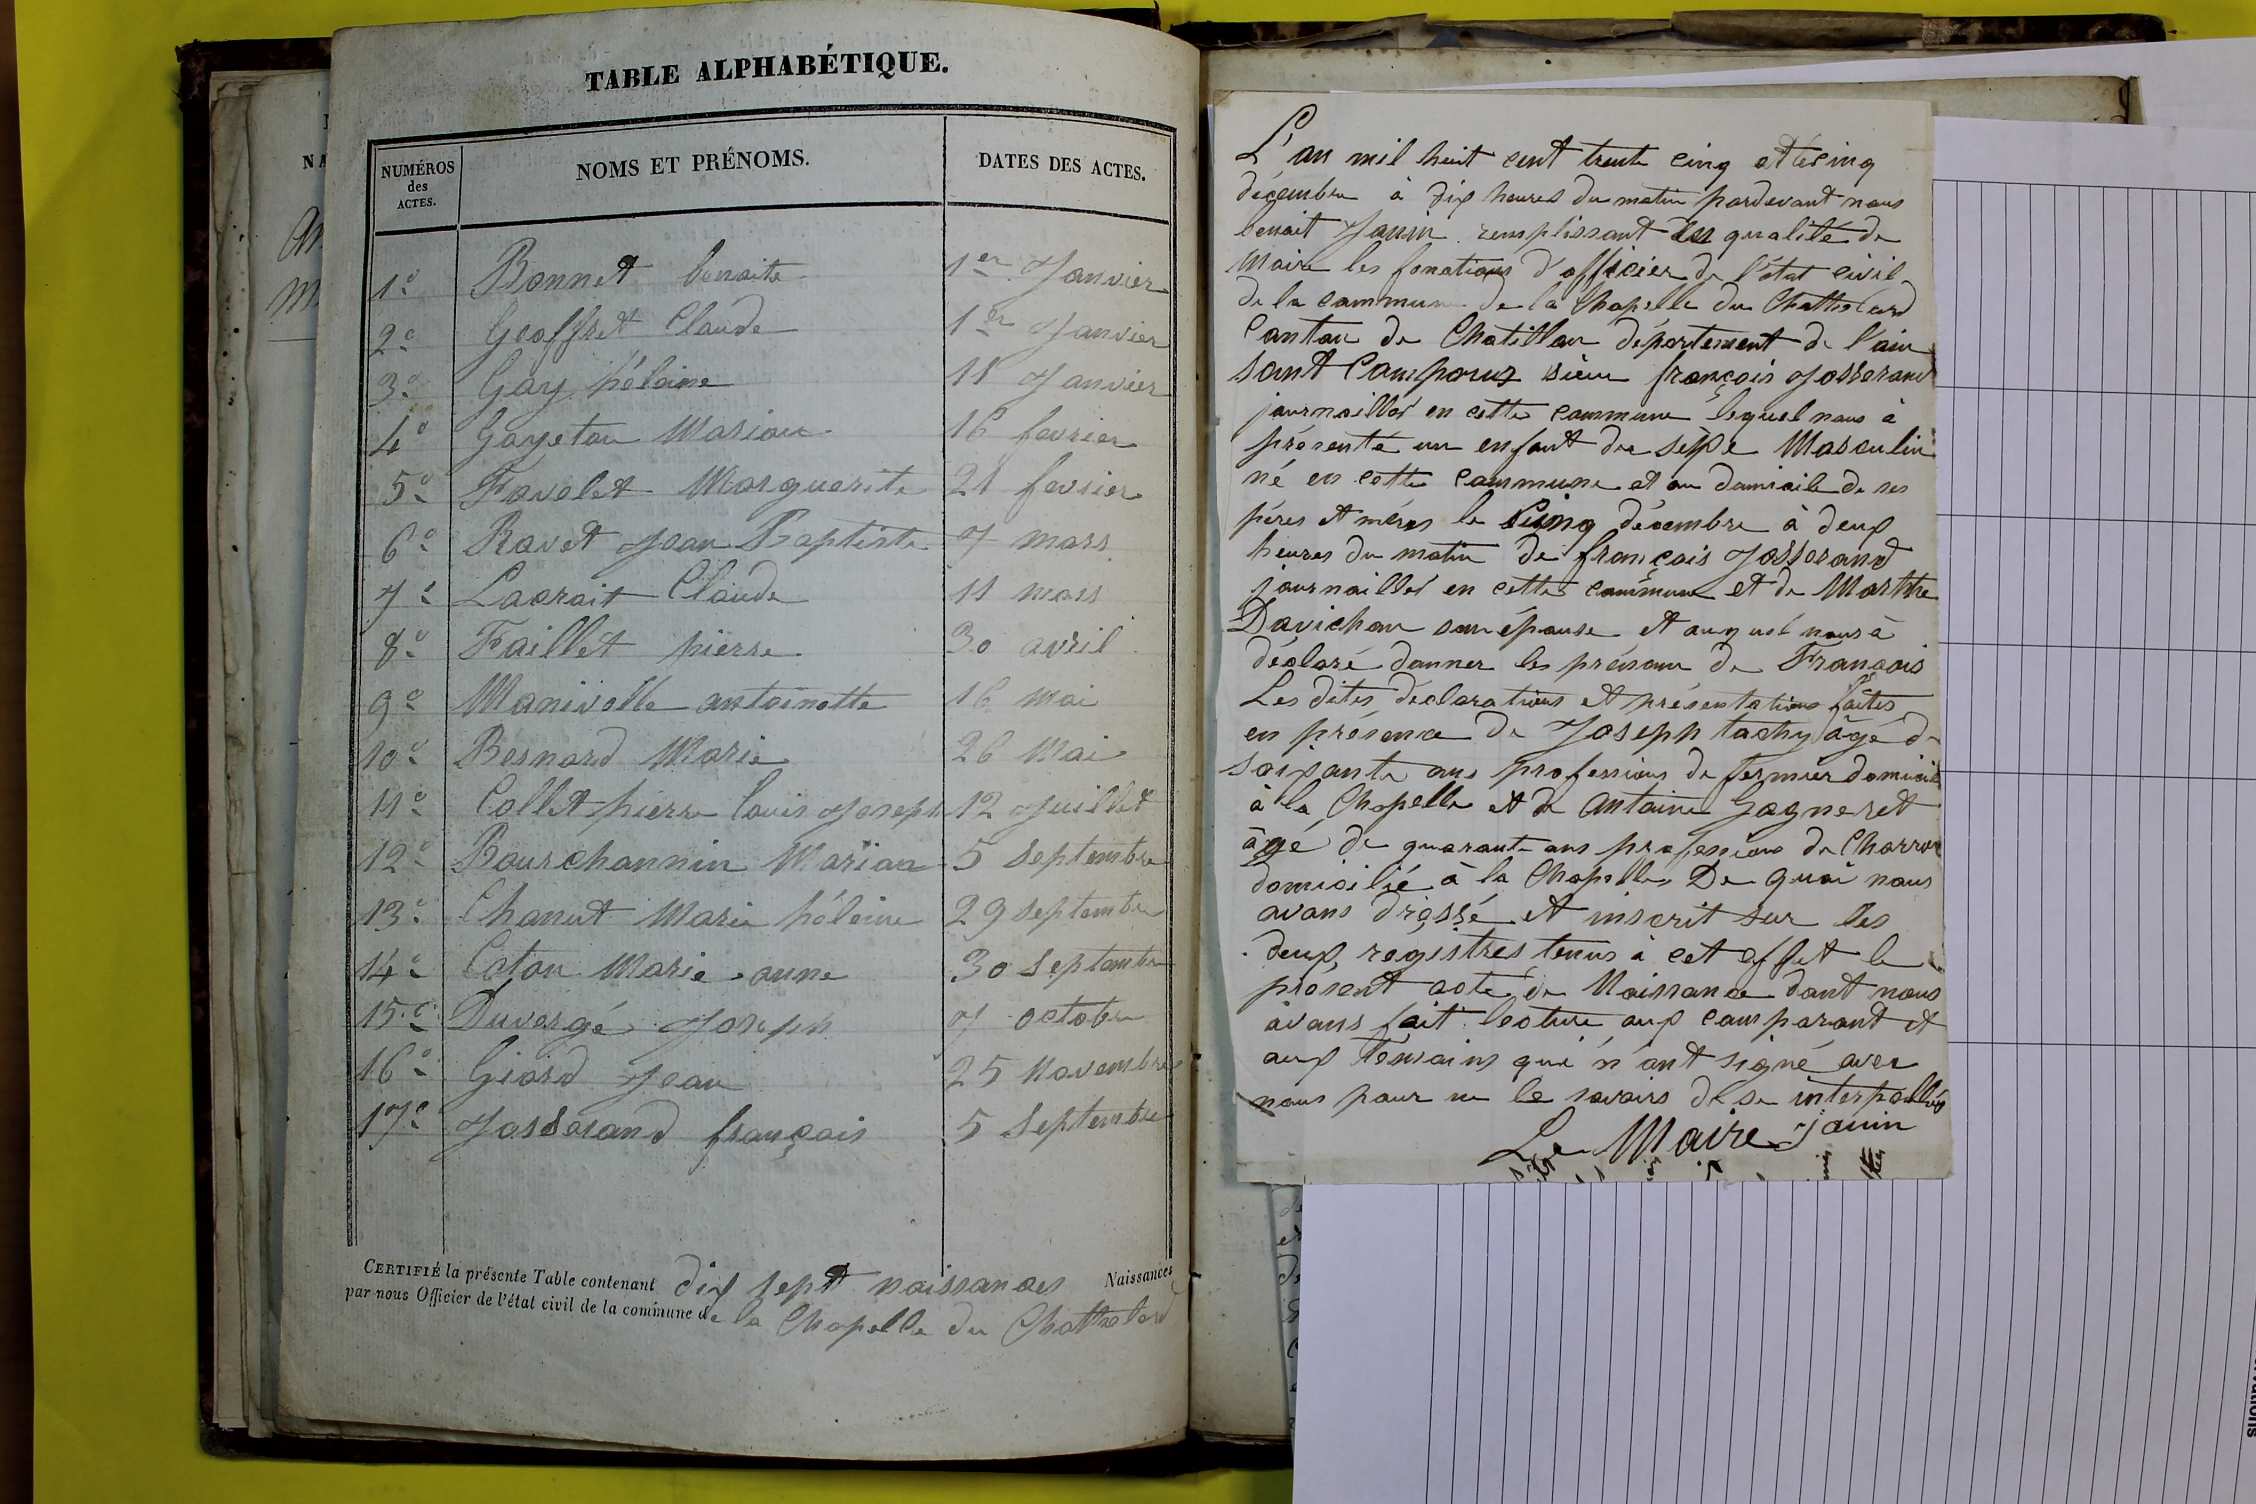 TABLE ALPHABÉTIQUE.
NUMÉROS des ACTES. NOMS ET PRÉNOMS. DATES DES ACTES.
1e Bonnet benoite 1er Janvier
2e Geoffret Claude 1er Janvier
3e Gay hélaine 11 Janvier
4e Gayetou Mariou 16 fevrier
5e Favolet Marguerite 21 fevrier
6e Ravet Jean Baptiste 7 mars
7e Lacrait Claude 11 mars
8e Faillet pierre 30 avril
9e Manivelle antoinette 16 mai
10e Besnard Marie 26 Mai
11e Collet pierre louis Joseph 12 Juillet
12e Bourchannin Mariaa 5 Septembre
13e Chanut Marie hélaine 29 septembre
14e Coton Marie anne 30 Septembre
15e Duvergé Joseph 7 octobre
16e Giard Jean 25 Novembre
17e Josserand françois 5 Septembre
CERTIFIÉ la présente Table contenant dix sept naissances Naissances
par nous Officier de l'état civil de la commune de la Chapelle du Chattelard
L'an mil huit cent trente cinq et le cinq
décembre à dix heures du matin pardevant nous
benoit Janin remplissant en qualité de
Maire les fonctions d'officier de l'état civil
de la commune de la Chapelle du Chattelard
Canton de Chatillon département de l'ain
sont Comparuz sieur françois Josserand
journaillé en cette commune lequel nous à
présenté un enfant du sexe Masculin
né en cette commune et au domicile de ses
péres et méres le Cinq décembre à deux
heures du matin de françois Josserand
journaillé en cette commune et de Marthe
Davichon son épouse et auquel nous à
déclaré donner les prénom de François
Les dites déclarations et présentations faites
en présence de Joseph tachy âgé de
soixante ans profession de fermier domicilié
à la Chapelle et de Antoine Gagneret
âgé de quarante ans profession de Charron
domicilié à la Chapelle De quoi nous
avons dressé et inscrit sur les
deux registres tenus à cet effet le
présent acte de Naissance dont nous
avons fait lecture aux comparant et
aux témoins qui n'ont signé avec
nous pour ne le savoirs de se interpellés
Le Maire Janin